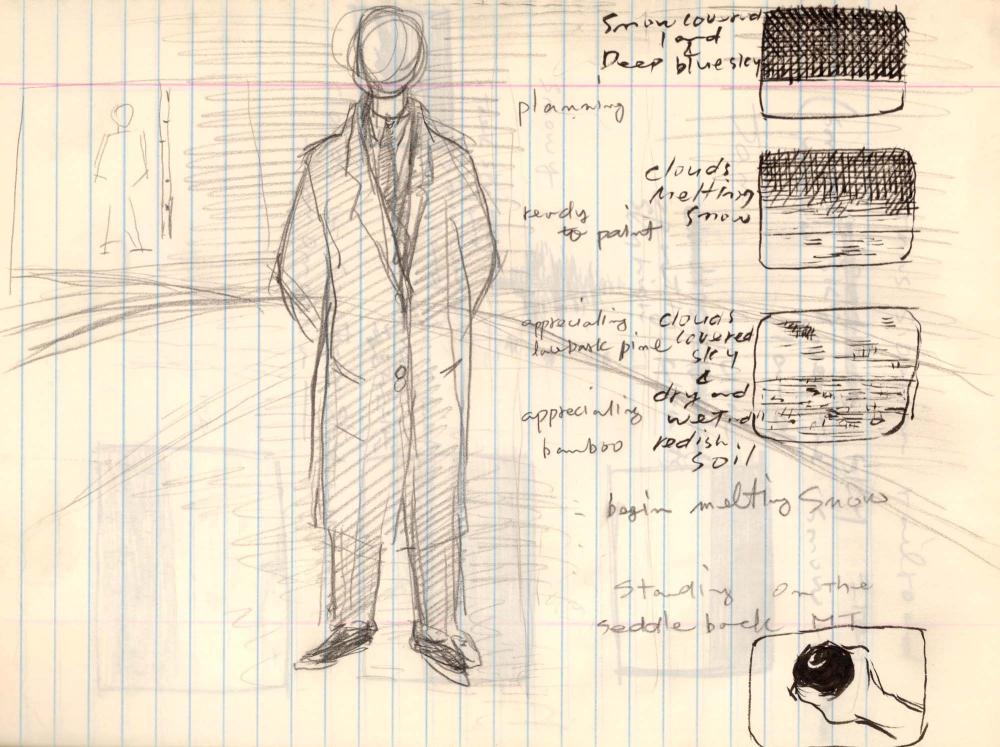 Snow covered
land
&
Deep blue sky
planning
clouds
Melting
Snow
ready
to paint
clouds
covered
sky
&
appreciating
pine
dry and
wet
redish
soil
appreciating
bamboo
begin melting Snow
Standing on the
seddle back MT